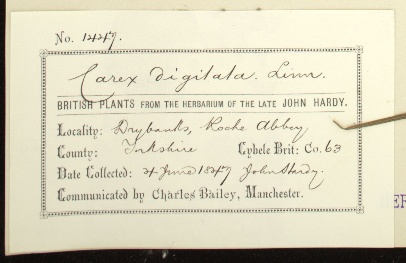 No. 1447.
Carex digitata. Linn.
BRITISH PLANTS FROM THE HERBARIUM OF THE LATE JOHN HARDY.
Locality: Drybanks, Roche Abbey
County: Yorkshire Cybele Brit: Co. 63
Date Collected: 4 June 1847 John Hardy.
Communicated by Charles Bailey, Manchester.
ER